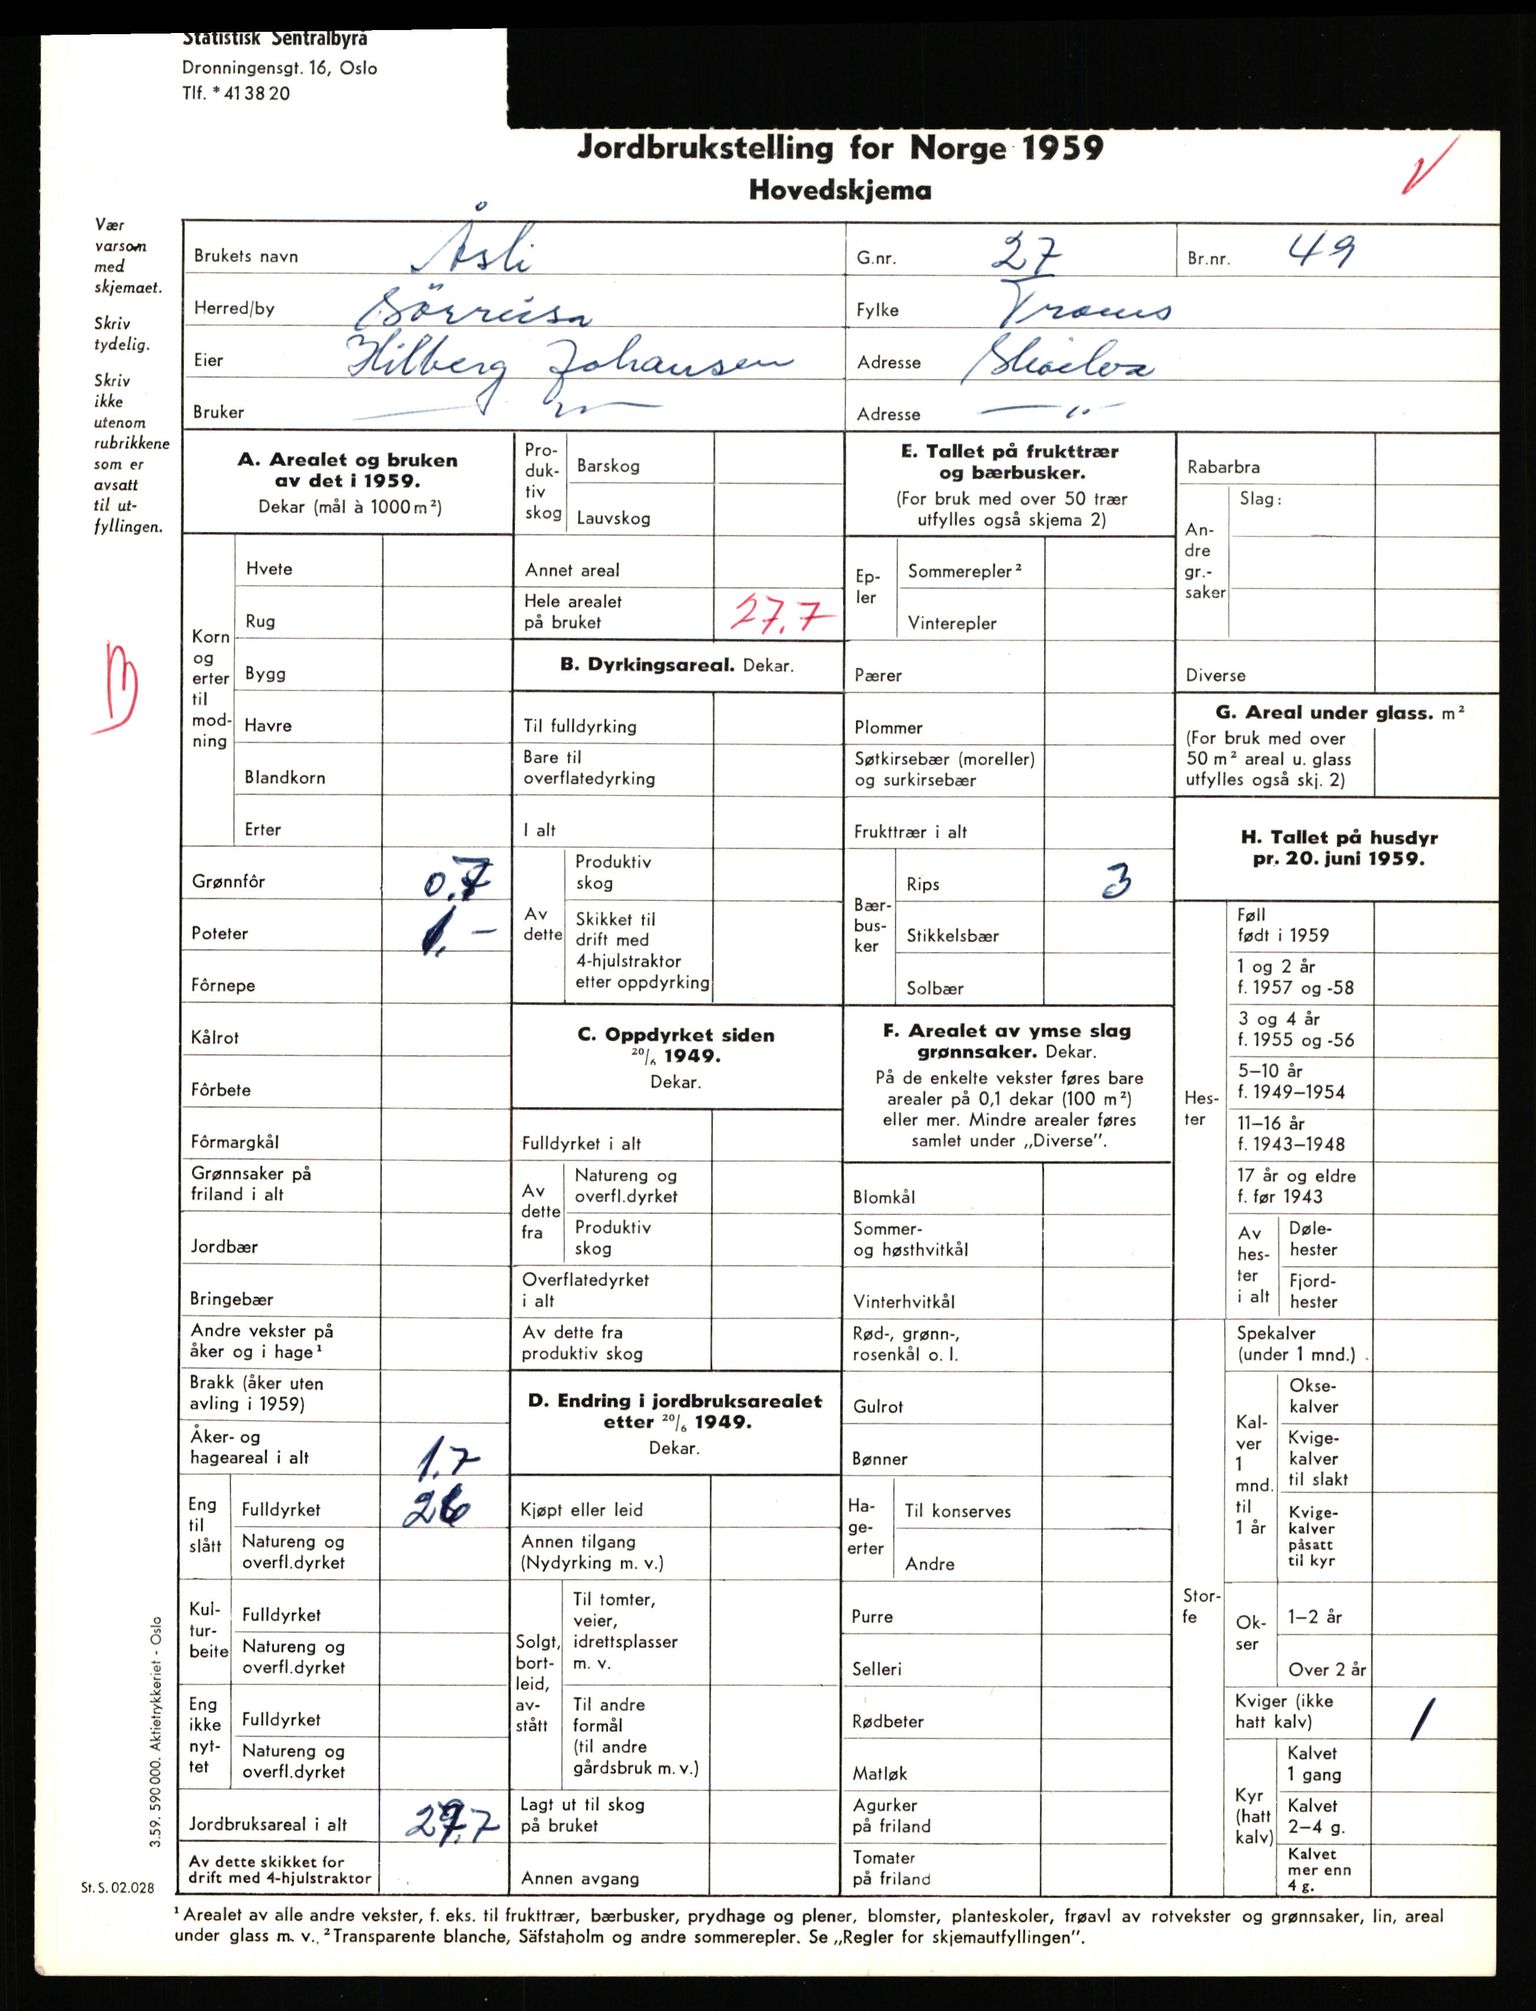 Statistisk Sentralbyrå
Dronningensgt. 16, Oslo
Tlf. * 41 38 20
Jordbrukstelling for Norge 1959
Hovedskjema
Vær
varsom
med
skjemaet.
Skriv
tydelig.
Skriv
ikke
utenom
rubrikkene
som er
avsatt
til ut-
fyllingen.
Brukets navn Åsli G.nr. 27 Br.nr. 49
Herred/by Sörreisa Fylke Troms
Eier Hilberg Johansen Adresse
Bruker — " — Adresse — " —
A. Arealet og bruken
av det i 1959.
Dekar (mål à 1000 m²)
Korn
og
erter
til
mod-
ning
Hvete
Rug
Bygg
Havre
Blandkorn
Erter
Grønnfôr 0.7
Poteter 1.-
Fôrnepe
Kålrot
Fôrbete
Fôrmargkål
Grønnsaker på
friland i alt
Jordbær
Bringebær
Andre vekster på
åker og i hage ¹
Brakk (åker uten
avling i 1959)
Åker- og
hageareal i alt 1.7
Eng
til
slått
Fulldyrket 26
Natureng og
overfl.dyrket
Kul-
tur-
beite
Fulldyrket
Natureng og
overfl.dyrket
Eng
ikke
nyt-
tet
Fulldyrket
Natureng og
overfl.dyrket
Jordbruksareal i alt 27.7
Av dette skikket for
drift med 4-hjulstraktor
Pro-
duk-
tiv
skog
Barskog
Lauvskog
Annet areal
Hele arealet
på bruket 27.7
B. Dyrkingsareal. Dekar.
Til fulldyrking
Bare til
overflatedyrking
I alt
Av
dette
Produktiv
skog
Skikket til
drift med
4-hjulstraktor
etter oppdyrking
C. Oppdyrket siden
20/6 1949.
Dekar.
Fulldyrket i alt
Av
dette
fra
Natureng og
overfl.dyrket
Produktiv
skog
Overflatedyrket
i alt
Av dette fra
produktiv skog
D. Endring i jordbruksarealet
etter 20/6 1949.
Dekar.
Kjøpt eller leid
Annen tilgang
(Nydyrking m. v.)
Solgt,
bort-
leid,
av-
stått
Til tomter,
veier,
idrettsplasser
m. v.
Til andre
formål
(til andre
gårdsbruk m. v.)
Lagt ut til skog
på bruket
Annen avgang
E. Tallet på frukttrær
og bærbusker.
(For bruk med over 50 trær
utfylles også skjema 2)
Ep-
ler
Sommerepler ²
Vinterepler
Pærer
Plommer
Søtkirsebær (moreller)
og surkirsebær
Frukttrær i alt
Bær-
bus-
ker
Rips 3
Stikkelsbær
Solbær
F. Arealet av ymse slag
grønnsaker. Dekar.
På de enkelte vekster føres bare
arealer på 0,1 dekar (100 m²)
eller mer. Mindre arealer føres
samlet under „Diverse”.
Blomkål
Sommer-
og høsthvitkål
Vinterhvitkål
Rød-, grønn-,
rosenkål o. l.
Gulrot
Bønner
Ha-
ge-
erter
Til konserves
Andre
Purre
Selleri
Rødbeter
Matløk
Agurker
på friland
Tomater
på friland
Rabarbra
An-
dre
gr.-
saker
Slag:
Diverse
G. Areal under glass. m²
(For bruk med over
50 m² areal u. glass
utfylles også skj. 2)
H. Tallet på husdyr
pr. 20. juni 1959.
Hes-
ter
Føll
født i 1959
1 og 2 år
f. 1957 og -58
3 og 4 år
f. 1955 og -56
5–10 år
f. 1949–1954
11–16 år
f. 1943–1948
17 år og eldre
f. før 1943
Av
hes-
ter
i alt
Døle-
hester
Fjord-
hester
Stor-
fe
Spekalver
(under 1 mnd.)
Kal-
ver
1
mnd.
til
1 år
Okse-
kalver
Kvige-
kalver
til slakt
Kvige-
kalver
påsatt
til kyr
Ok-
ser
1–2 år
Over 2 år
Kviger (ikke
hatt kalv) 1
Kyr
(hatt
kalv)
Kalvet
1 gang
Kalvet
2–4 g.
Kalvet
mer enn
4 g.
3.59. 590 000. Aktietrykkeriet - Oslo
St. S. 02.028
¹ Arealet av alle andre vekster, f. eks. til frukttrær, bærbusker, prydhage og plener, blomster, planteskoler, frøavl av rotvekster og grønnsaker, lin, areal
under glass m. v. ² Transparente blanche, Säfstaholm og andre sommerepler. Se „Regler for skjemautfyllingen”.